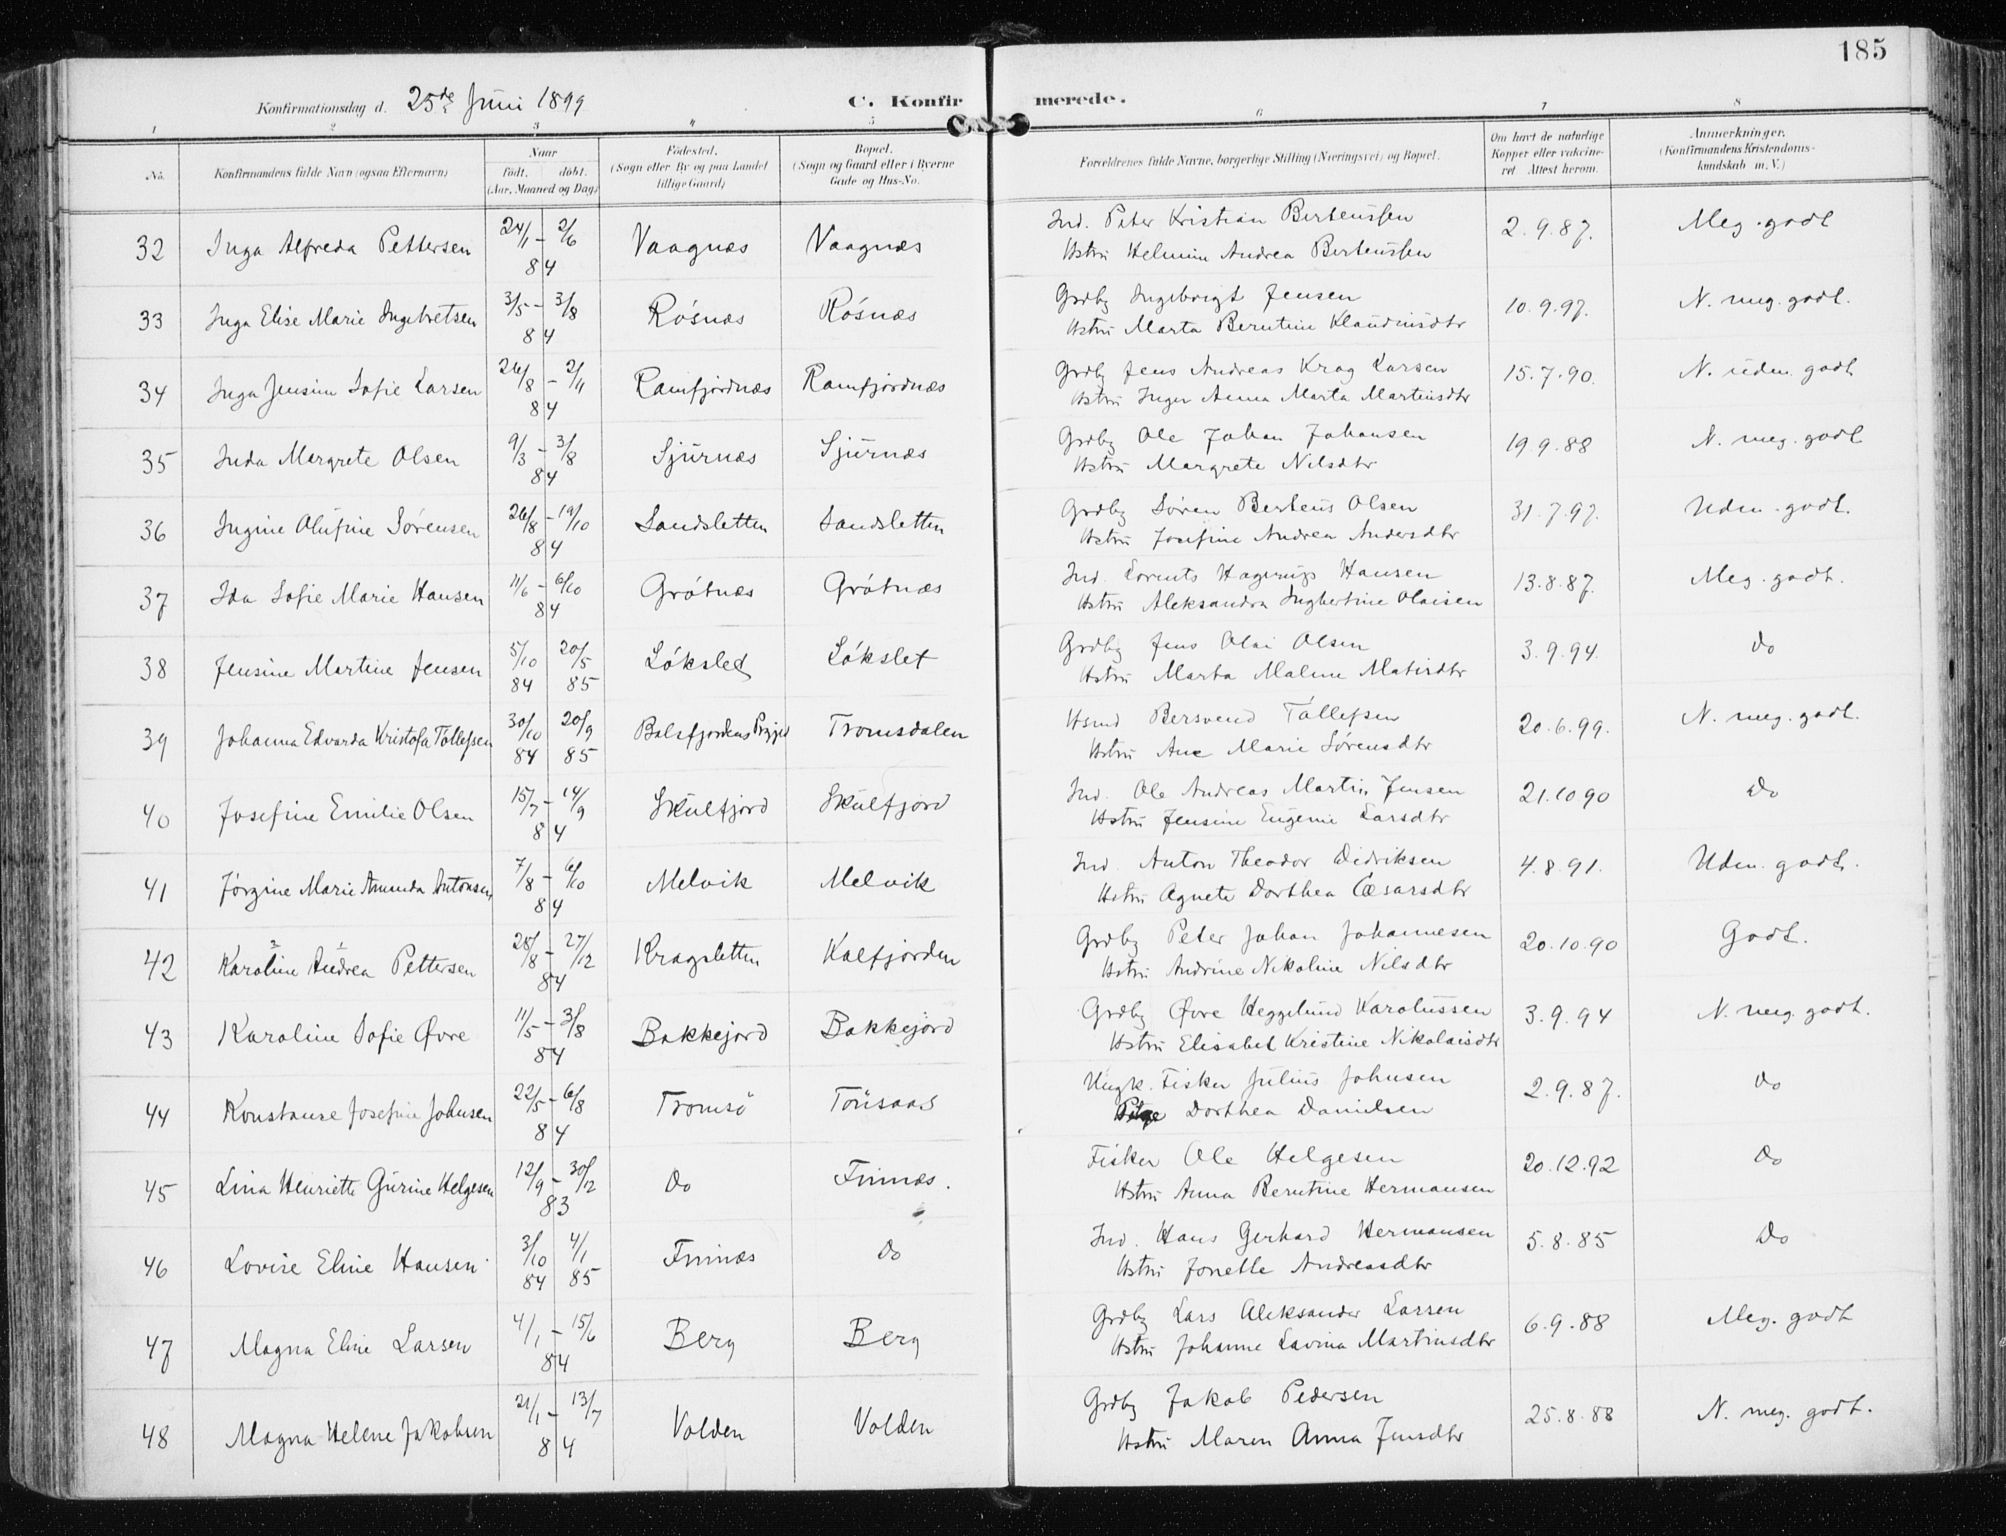 185
Konfirmationsdag d. 25de Juni 1899
C. Konfirmerede.
1 2 3 4 5 6 7 8
No. Konfirmandens fulde Navn (ogsaa Efternavn) Naar født. døbt. (Aar, Maaned og Dag) Fødested. (Sogn eller By og paa Landet tillige Gaard) Bopæl. (Sogn og Gaard eller i Byerne Gade og Hus-No. Forældrenes fulde Navne, borgerlige Stilling (Næringsvei) og Bopæl. Om havt de naturlige Kopper eller vakcineret Attest herom. Anmærkninger. (Konfirmandens Kristendomskundskab m. V.)
32 Inga Alfreda Pettersen 24/1 – 2/6 84 Vaagnæs Vaagnæs Ind. Peter Kristian Berteussen 2.9.87. Meg. godt
Hstru Helmine Andrea Berteussen
33 Inga Elise Marie Ingebretsen 3/5 – 3/8 84 Røsnæs Røsnæs Grdbg Ingebrigt Jensen 10.9.97. N. meg. godt.
Hstru Marta Berntine Klaudiusdtr
34 Inga Jensine Sofie Larsen 26/8 – 2/11 84 Ramfjordnæs Ramfjordnæs Grdbg Jens Andreas Krag Larsen 15.7.90. N. udm. godt
Hstru Inger Anna Marta Martinsdtr
35 Inda Margrete Olsen 9/3 – 3/8 84 Sjursnæs Sjurnæs Grdbg Ole Johan Johansen 19.9.88 N. meg. godt
Hstru Margrete Nilsdtr
36 Ingine Olufine Sørensen 26/8 – 19/10 84 Sandsletten Sandsletten Grdbg Søren Berteus Olsen 31.7.97. Udm. godt.
Hstru Josefine Andrea Andersdtr
37 Ida Sofie Marie Hansen 11/6 – 6/10 84 Grøtnæs Grøtnæs Ind. Lorents Hagerup Hansen 13.8.87. Meg. godt.
Hstru Aleksandra Ingbertine Olaisen
38 Jensine Martine Jensen 5/10 84 20/5 85 Løksled Løkslet Grdbg Jens Olai Olsen 3.9.94. Do
Hstru Marta Maline
39 Johanna Edvarda Kristofa Tollefsen 30/10 84 20/9 85 Balsfjordens Prgjld Tromsdalen Hsmd Bersvend Tollefsen 20.6.99. N. meg. godt.
Hstru Ane Marie Sørensdtr
40 Josefine Emilie Olsen 15/7 – 14/9 84 Skulfjord Skulfjord Ind. Ole Andreas Martin Jensen 21.10.90 Do
Hstru Jensine Eugenie Larsdtr
41 Jørgine Marie Amanda Antonsen 7/8 – 6/10 84 Melvik Melvik Ind. Anton Theodor Didriksen 4.8.91. Udm. godt.
Hstru Agnete Dorthea Cæsarsdtr
42 Karoline Andrea Pettersen 28/8 – 27/12 84 Kragsletten Kalfjorden Grdbg Peter Johan Johannesen 20.10.90 Godt.
Hstru Andrine Nikoline Nilsdtr
43 Karoline Sofie Øvre 11/5 – 3/8 84 Bakkejord Bakkejord Grdbg Øvre Heggelund Karolussen 3.9.94 N. meg. godt.
Hstru Elisabet Kristine Nikolaisdtr
44 Konstanse Josefine Johnsen 22/5 – 6/8 84 Tromsö Tønsaas Ungk. Fisker Julius Johnsen 2.9.87. Do
Pige Dorthea Danielsen
45 Lina Henriette Gurine Helgesen 12/9 – 30/12 83 Do Finnæs. Fisker Ole Helgesen 20.12.92 Do
Hstru Anna Berntine Hermansen
46 Lovise Eline Hansen 3/10 84 4/1 85 Finnæs Do Ind. Hans Gerhard Hermansen 5.8.85 Do
Hstru Jonette Andreasdtr
47 Magna Eline Larsen 4/1 – 15/6 84 Berg Berg Grdbg Lars Aleksander Larsen 6.9.88 Meg. godt
Hstru Johanne Lavina Martinsdtr
48 Magna Helene Jakobsen 21/1 – 13/7 84 Volden Volden Grdbg Jakob Pedersen 25.8.88 N. meg. godt.
Hstru Maren Anna Jensdtr